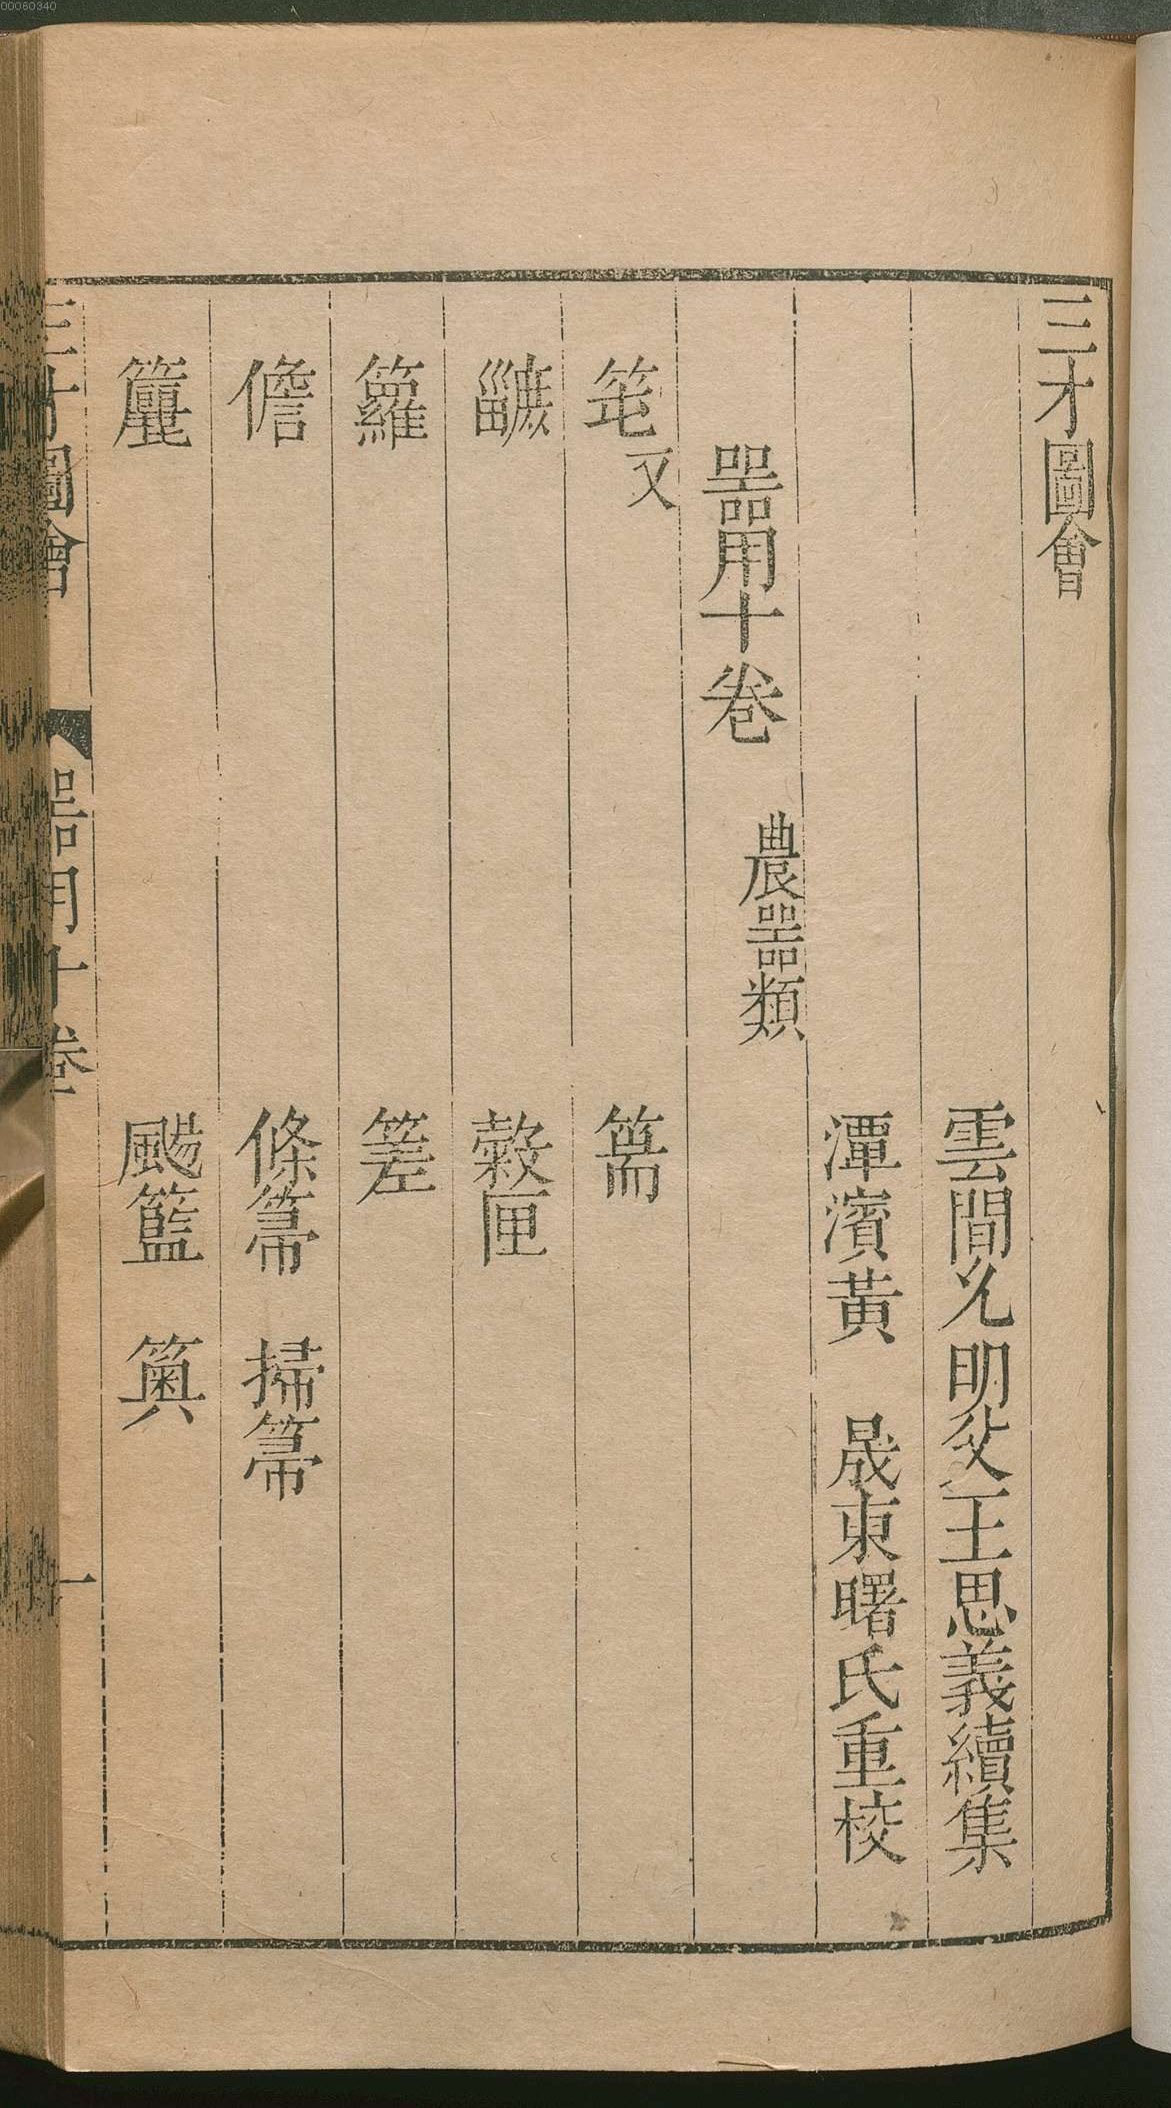 00060340
三才圖會
雲間允明父王思義續集
潭濱黃 晟東曙氏重校
器用十卷 農器類
篅
穀匣
籮 䇪
儋 條箒 掃箒
颺籃
三才圖會 器用十卷 一